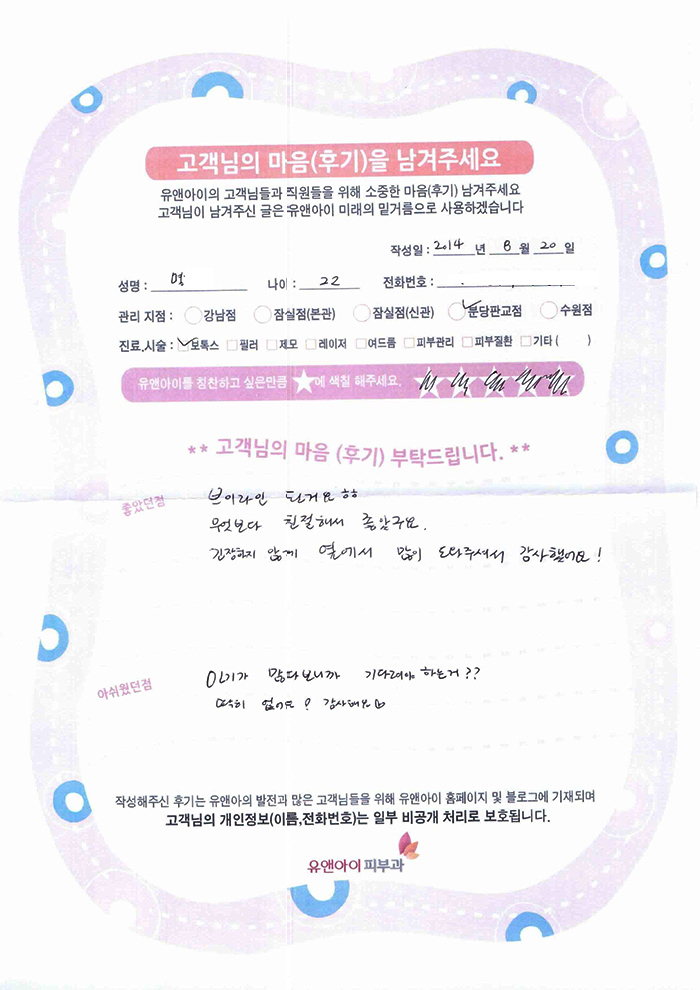 고객님의 마음(후기)을 남겨주세요
유앤아이의 고객님들과 직원들을 위해 소중한 마음(후기) 남겨주세요
고객님이 남겨주신 글은 유앤아이 미래의 밑거름으로 사용하겠습니다
작성일 : 2014 년 8 월 20 일
성명 : 나이 : 22 전화번호 :
관리 지점 : 강남점 잠실점(본관) 잠실점(신관) 분당판교점 수원점
진료,시술 : 보톡스 필러 제모 레이저 여드름 피부관리 피부질환 기타 ( )
유앤아이를 칭찬하고 싶은만큼 ★에 색칠 해주세요.
** 고객님의 마음 (후기) 부탁드립니다. **
좋았던점
브이라인 된거요 ㅎㅎ
무엇보다 친절해서 좋았구요.
긴장하지 않게 옆에서 많이 도와주셔서 감사했어요!
아쉬웠던점
인기가 많다보니까 기다려야 하는거??
딱히 없어도? 감사해요
작성해주신 후기는 유앤아의 발전과 많은 고객님들을 위해 유앤아이 홈페이지 및 블로그에 기재되며
고객님의 개인정보(이름,전화번호)는 일부 비공개 처리로 보호됩니다.
유앤아이피부과